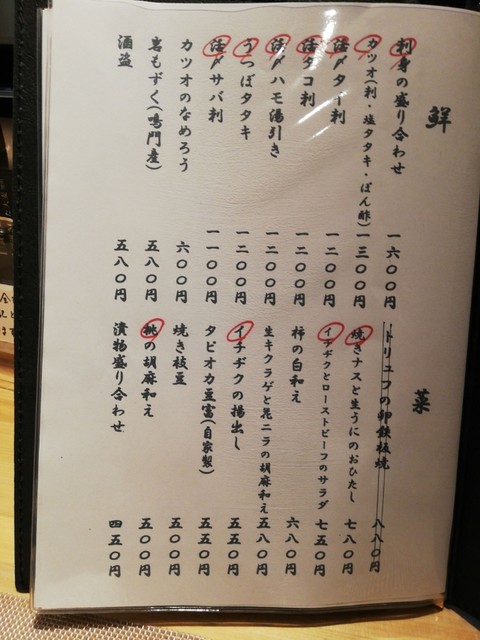 鮮
刺身の盛り合わせ 一六〇〇円
カツオ(刺・塩タタキ・ぽん酢) 一三〇〇円
活〆タイ刺 一二〇〇円
活タコ刺 一二〇〇円
活〆ハモ湯引き 一二〇〇円
うつぼタタキ 一二〇〇円
活〆サバ刺 一一〇〇円
カツオのなめろう 六〇〇円
岩もずく(鳴門産) 五八〇円
酒盗 五八〇円
菜
トリュフの卵鉄板焼 八八〇円
焼きナスと生うにのおひたし 七八〇円
イチヂクとローストビーフのサラダ 七五〇円
柿の白和え 六八〇円
生キクラゲと花ニラの胡麻和え 五八〇円
イチヂクの揚出し 五五〇円
タピオカ豆富(自家製) 五五〇円
焼き枝豆 五〇〇円
桃の胡麻和え 五〇〇円
漬物盛り合わせ 四五〇円